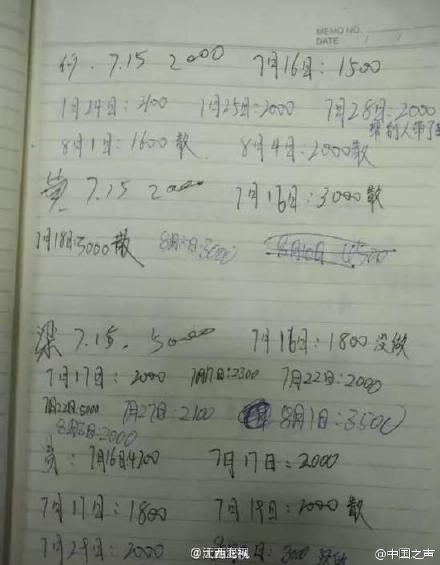 MEMO NO.
DATE / /
何. 7.15 2000 7月16日: 1500
7月24日: 2100 7月25日: 2000 7月28日: 2000
8月1日: 1600散 8月4日: 2000散
黄 7.15 2000 7月16日: 3000散
7月18日: 3000散 8月5日: 3000
梁 7.15. 5000 7月16日: 1800 没做
7月17日: 2000 7月17日: 2300 7月22日: 2000
7月22日: 5000 7月27日: 2100 8月1日: 3500
8月5日: 3000
7月16日: 4200 7月17日: 2000
7月17日: 1800 7月19日: 2000散
7月29日: 2000 3000
@江西电视
@中国之声